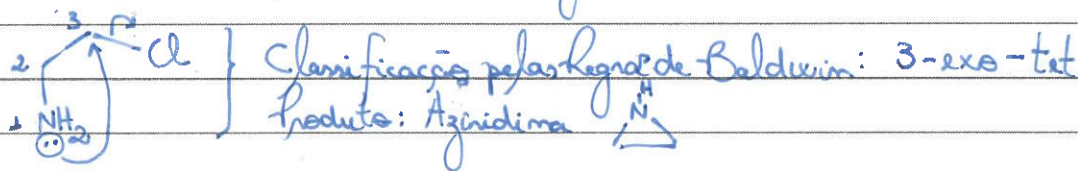 3
2 Cl } Classificação pelas Regras de Baldwin: 3-exo-tet
1 NH2 Produto: Aziridina H
N